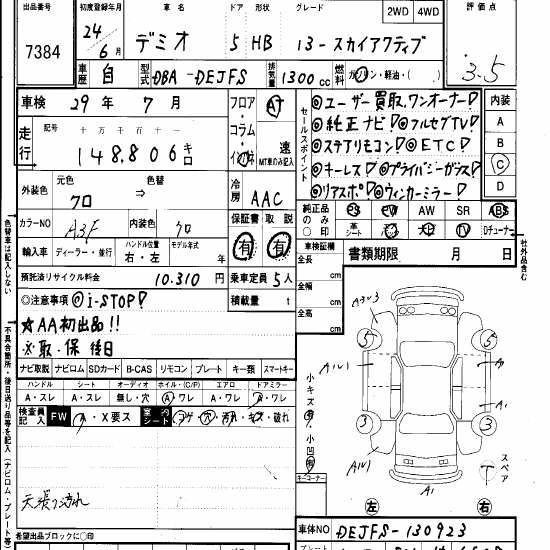 出品番号 初度登録年月 車名 ドア 形状 グレード 2WD 4WD 評価点
7384 24年6月 デミオ 5 HB 13-スカイアクティブ 3.5
車歴 自 型式 DBA-DEJFS 排気量 1300cc 燃料 ガソリン・軽油・( )
車検 29年 7月 フロア・コラム・インパネ AT 速 MT車のみ記入
走行 記号 十万千百十一
148,806キロ
セールスポイント
◎ユーザー買取、ワンオーナー!
◎純正ナビ!◎フルセグTV!
◎ステアリモコン!◎ETC!
◎キーレス!◎プライバシーガラス!
◎リアスポ!◎ウィンカーミラー!
内装
A
B
C
D
外装色 元色 色替
クロ ⇒
冷房 AAC
カラーNO A3F 内装色 クロ
保証書 取説
有 有
純正品のみ◯印 PS PW AW SR ABS
革シート カワ AB TV Dチューナー
社外品含む
輸入車 ディーラー・並行 ハンドル位置 右・左 モデル年式 年
車検証欄 書類期限 月 日
全長 cm
全幅 cm
全高 cm
預託済リサイクル料金 10,310円 乗車定員 5人
積載量 t
◎注意事項 ◎i-STOP!
★AA初出品!!
※取、保 後日
ナビ取説 ナビロム SDカード B-CAS リモコン プレート キー類 スマートキー
ハンドル シート オーディオ ホイル・(C/P) エアロ ドアミラー
A・スレ A・スレ 無し・穴 A・ワレ A・ワレ A・ワレ
検査員記入 FW A・X要ス 室内シート コゲ・穴・汚れ・キズ・破れ
天張り汚れ
小キズ有・小凹有
キーコーナー
A3U3
5 5
A1U1 A
A1
3 3
A1U1
A1
スペア
T
左 右
色替車は記入しない
不具合箇所・後日送り品等を記入(ナビロム・プレート等)
希望出品ブロックに◯印
車体NO DEJFS-130923
プレート